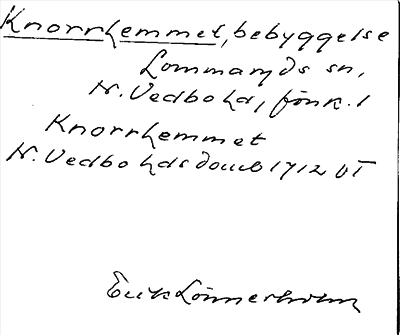 Knorrhemmet, bebyggelse
Lommaryds sn,
N. Vedbo hd, Jönk. l
Knorrhemmet
N. Vedbo hds domb 1712 VT
Erik Lönnerholm